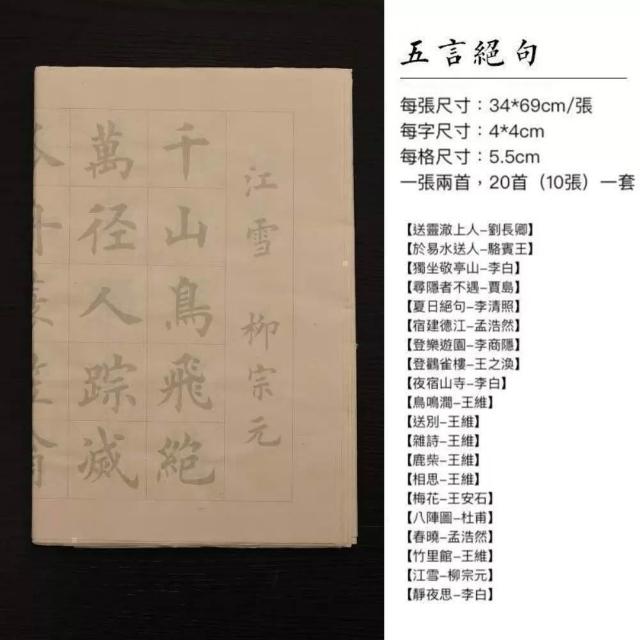 江雪 柳宗元
千山鳥飛絶
萬径人踪滅
五言絕句
每張尺寸：34*69cm/張
每字尺寸：4*4cm
每格尺寸：5.5cm
一張兩首，20首（10張）一套
【送靈澈上人–劉長卿】
【於易水送人–駱賓王】
【獨坐敬亭山–李白】
【尋隱者不遇–賈島】
【夏日絕句–李清照】
【宿建德江–孟浩然】
【登樂遊園–李商隱】
【登鸛雀樓–王之渙】
【夜宿山寺–李白】
【鳥鳴澗–王維】
【送別–王維】
【雜詩–王維】
【鹿柴–王維】
【相思–王維】
【梅花–王安石】
【八陣圖–杜甫】
【春曉–孟浩然】
【竹里館–王維】
【江雪–柳宗元】
【靜夜思–李白】